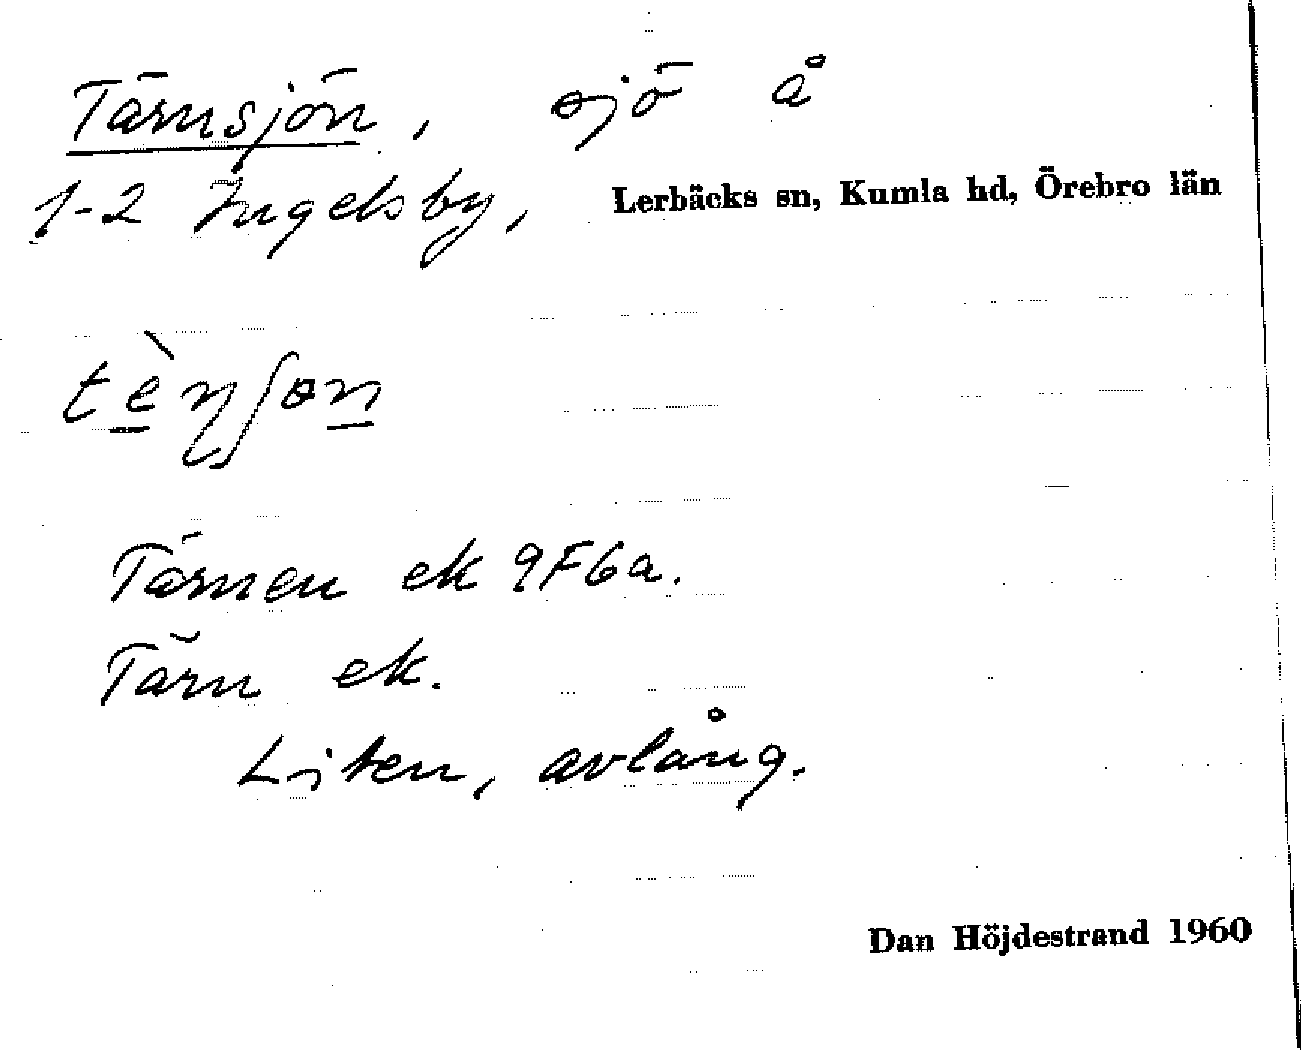 Tärnsjön, sjö å
1-2 Ingelsby, Lerbäcks sn, Kumla hd, Örebro län
Tärnen ek 9F6a.
Tärn ek.
Liten, avlång.
Dan Höjdestrand 1960